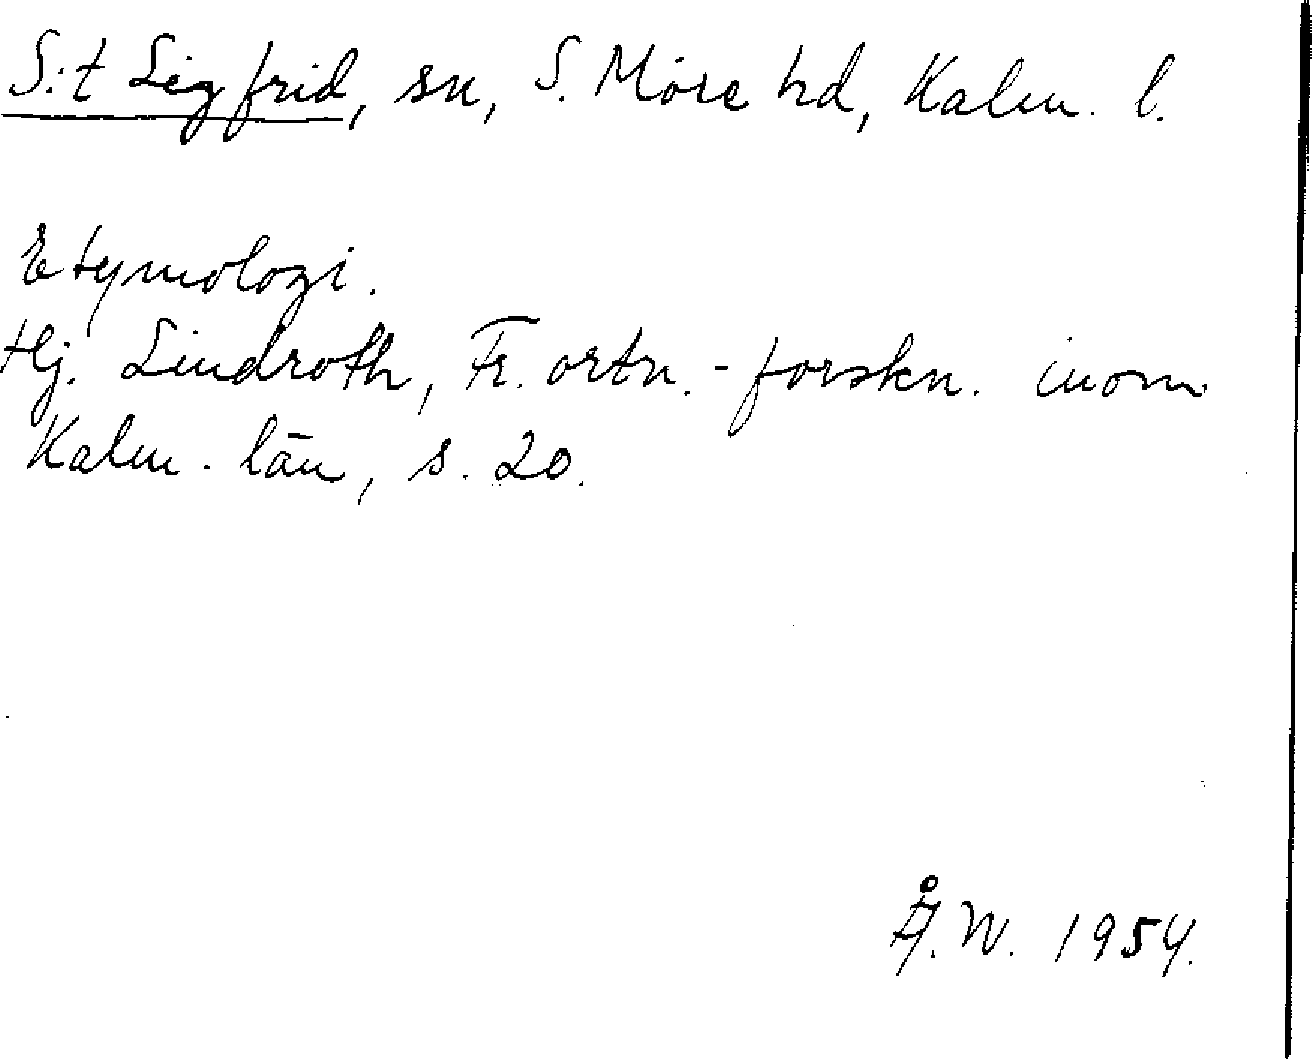 S:t Sigfrid, sn, S. Möre hd, Kalm. l.
Etymologi.
Hj. Lindroth, Fr. ortn.-forskn. inom
Kalm. län, s. 20.
Å. W. 1954.